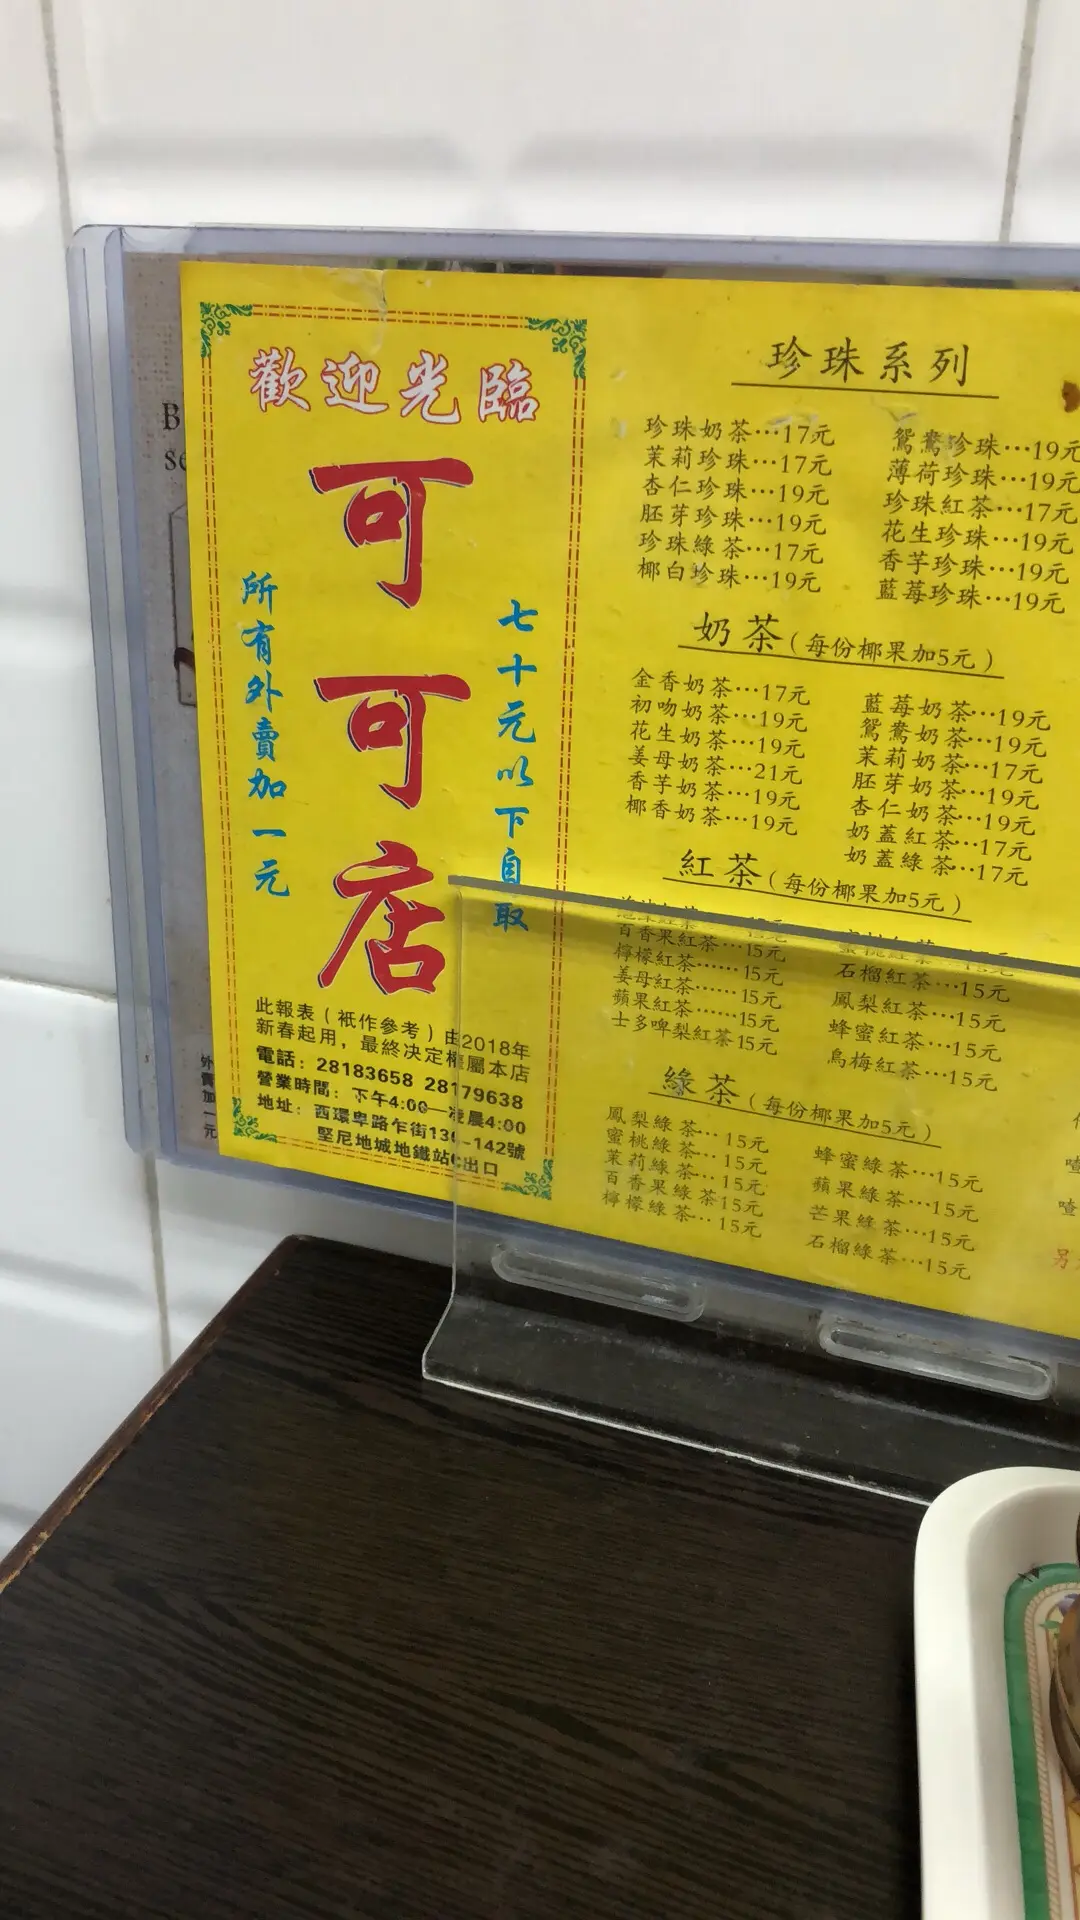 歡迎光臨
可可店
所有外賣加一元
七十元以下自取
此報表（祇作參考）由2018年
新春起用，最終決定權屬本店
電話：28183658 28179638
營業時間：下午4:00—凌晨4:00
地址：西環卑路乍街136-142號
堅尼地城地鐵站C出口
珍珠系列
珍珠奶茶…17元
茉莉珍珠…17元
杏仁珍珠…19元
胚芽珍珠…19元
珍珠綠茶…17元
椰白珍珠…19元
鴛鴦珍珠…19元
薄荷珍珠…19元
珍珠紅茶…17元
花生珍珠…19元
香芋珍珠…19元
藍莓珍珠…19元
奶茶（每份椰果加5元）
金香奶茶…17元
初吻奶茶…19元
花生奶茶…19元
姜母奶茶…21元
香芋奶茶…19元
椰香奶茶…19元
藍莓奶茶…19元
鴛鴦奶茶…19元
茉莉奶茶…17元
胚芽奶茶…19元
杏仁奶茶…19元
奶蓋紅茶…17元
奶蓋綠茶…17元
紅茶（每份椰果加5元）
百香果紅茶…15元
檸檬紅茶……15元
姜母紅茶……15元
蘋果紅茶……15元
士多啤梨紅茶15元
石榴紅茶…15元
鳳梨紅茶…15元
蜂蜜紅茶…15元
烏梅紅茶…15元
綠茶（每份椰果加5元）
鳳梨綠茶…15元
蜜桃綠茶…15元
茉莉綠茶…15元
百香果綠茶15元
檸檬綠茶…15元
蜂蜜綠茶…15元
蘋果綠茶…15元
芒果綠茶…15元
石榴綠茶…15元
喳
喳
另
外賣加一元